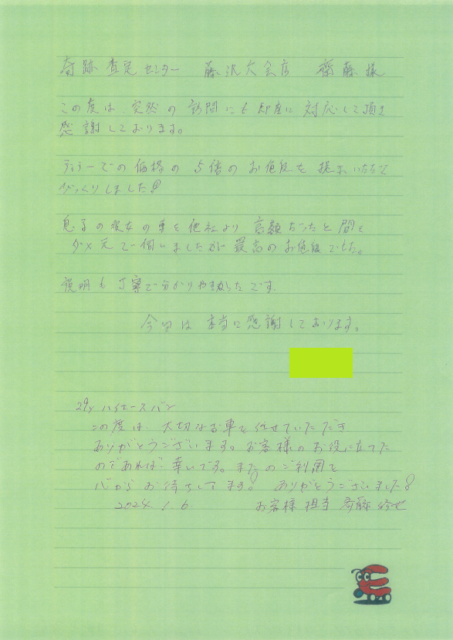 奇跡査定センター 藤沢大庭店 齋藤様
この度は突然の訪問にも即座に対応して頂き
感謝しております。
ディーラーでの価格の5倍のお値段を提示いただき
びっくりしました!!
息子の彼女の車を他社より高額だったと聞く
ダメ元で伺いましたが最高のお値段でした。
説明も丁寧で分かりやすかったです
今回は本当に感謝しております。
ハイエースバン
この度は大切なお車を任せていただき
ありがとうございます。お客様のお役に立てた
のであれば幸いです。またのご利用を
心からお待ちしてます! ありがとうございました!
2024. 1. 6 お客様担当 斉藤